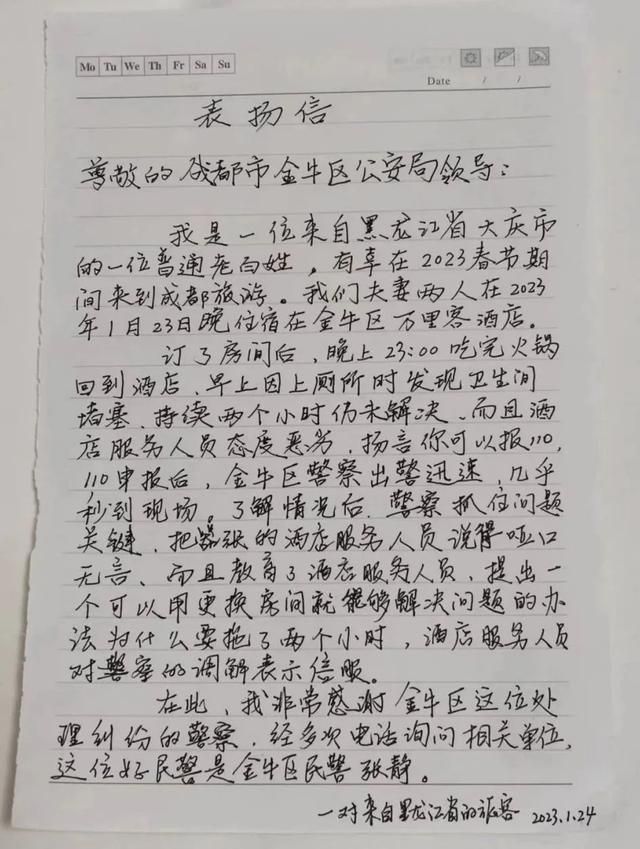 Mo Tu We Th Fr Sa Su
Date / /
表扬信
尊敬的成都市金牛区公安局领导：
我是一位来自黑龙江省大庆市
的一位普通老百姓，有幸在2023春节期
间来到成都旅游。我们夫妻两人在2023
年1月23日晚住宿在金牛区万里客酒店。
订了房间后，晚上23:00吃完火锅
回到酒店，早上因上厕所时发现卫生间
堵塞、持续两个小时仍未解决、而且酒
店服务人员态度恶劣，扬言你可以报110，
110申报后，金牛区警察出警迅速，几乎
秒到现场。了解情况后，警察抓住问题
关键、把嚣张的酒店服务人员说得哑口
无言、而且教育了酒店服务人员，提出一
个可以用更换房间就能够解决问题的办
法为什么要拖了两个小时，酒店服务人员
对警察的调解表示信服。
在此，我非常感谢金牛区这位处
理纠纷的警察，经多次电话询问相关单位，
这位好民警是金牛区民警张静。
一对来自黑龙江省的旅客 2023.1.24